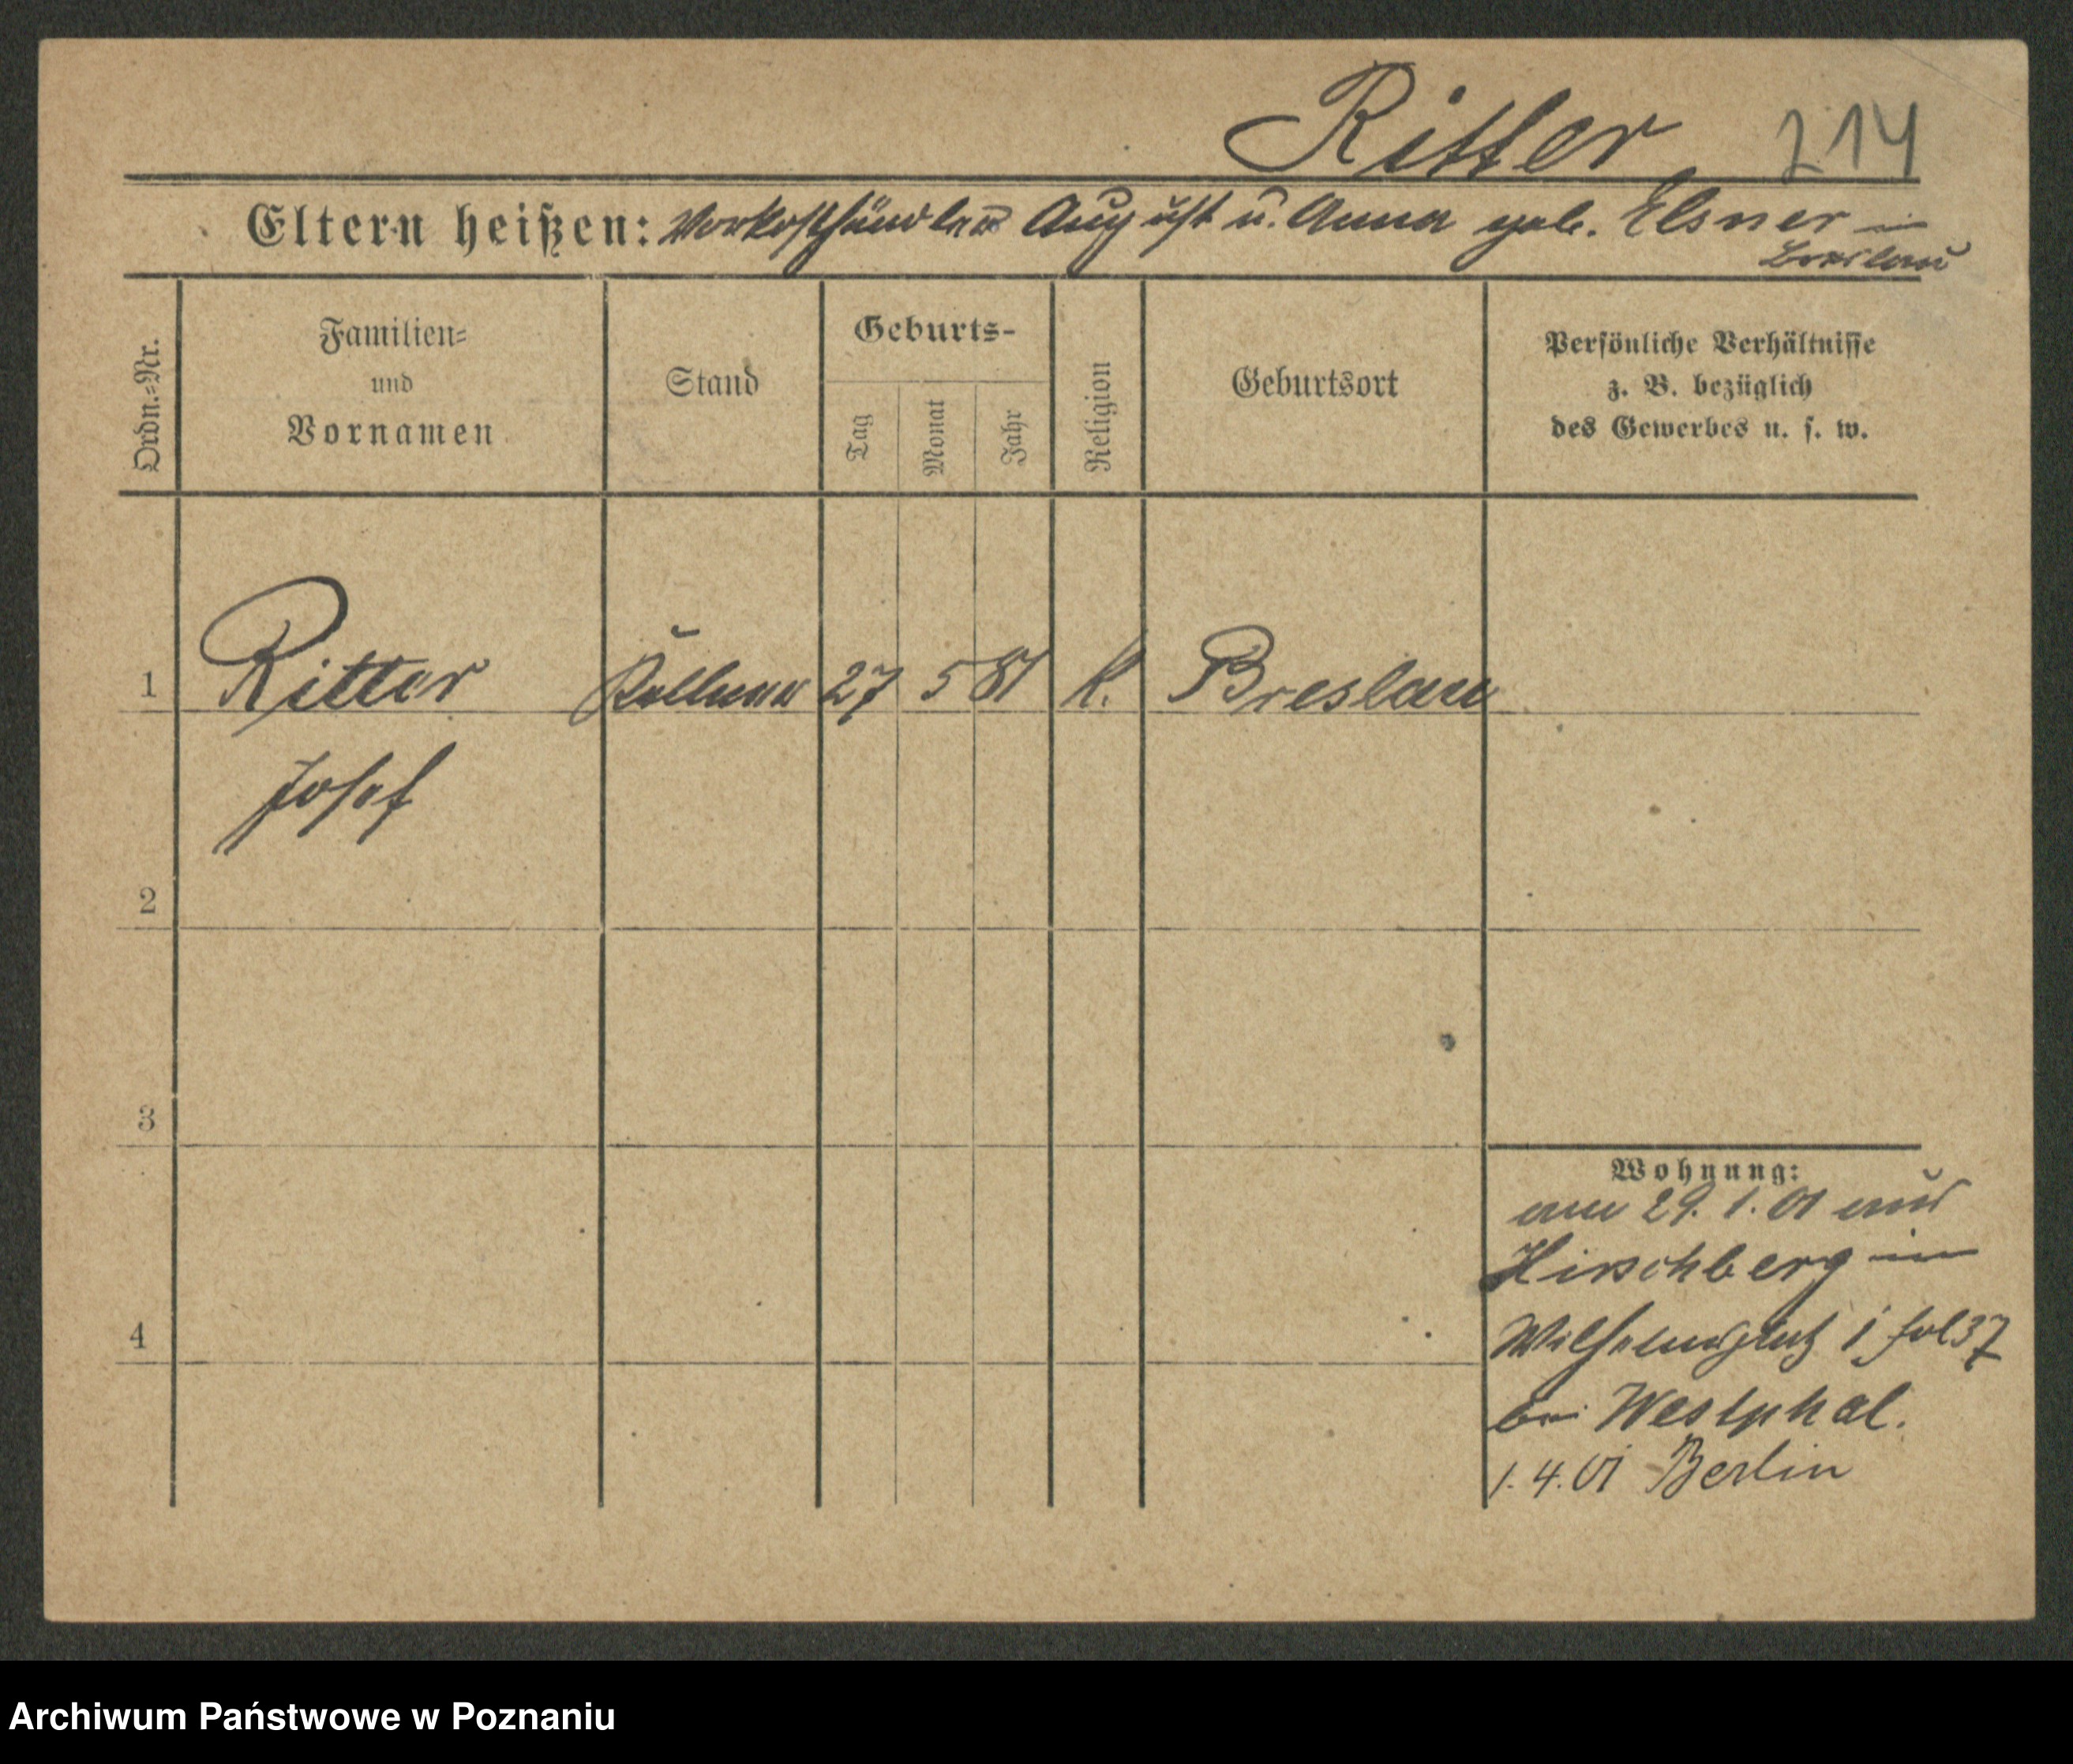 Ritter 214
Eltern heißen: Vorkosthändler August u. Anna geb. Elsner in
Breslau
Ordn.=Nr.
Familien=
und
Vornamen
Stand
Geburts-
Tag
Monat
Jahr
Religion
Geburtsort
Persönliche Verhältnisse
z. B. bezüglich
des Gewerbes u. s. w.
1 Ritter Kellner 27 5 81 k. Breslau
Josef
2
3
Wohnung:
am 29. 1. 01 aus
Hirschberg in
4
Wilhelmsplatz 1 fol 37
bei Westphal.
1. 4. 01 Berlin
Archiwum Państwowe w Poznaniu